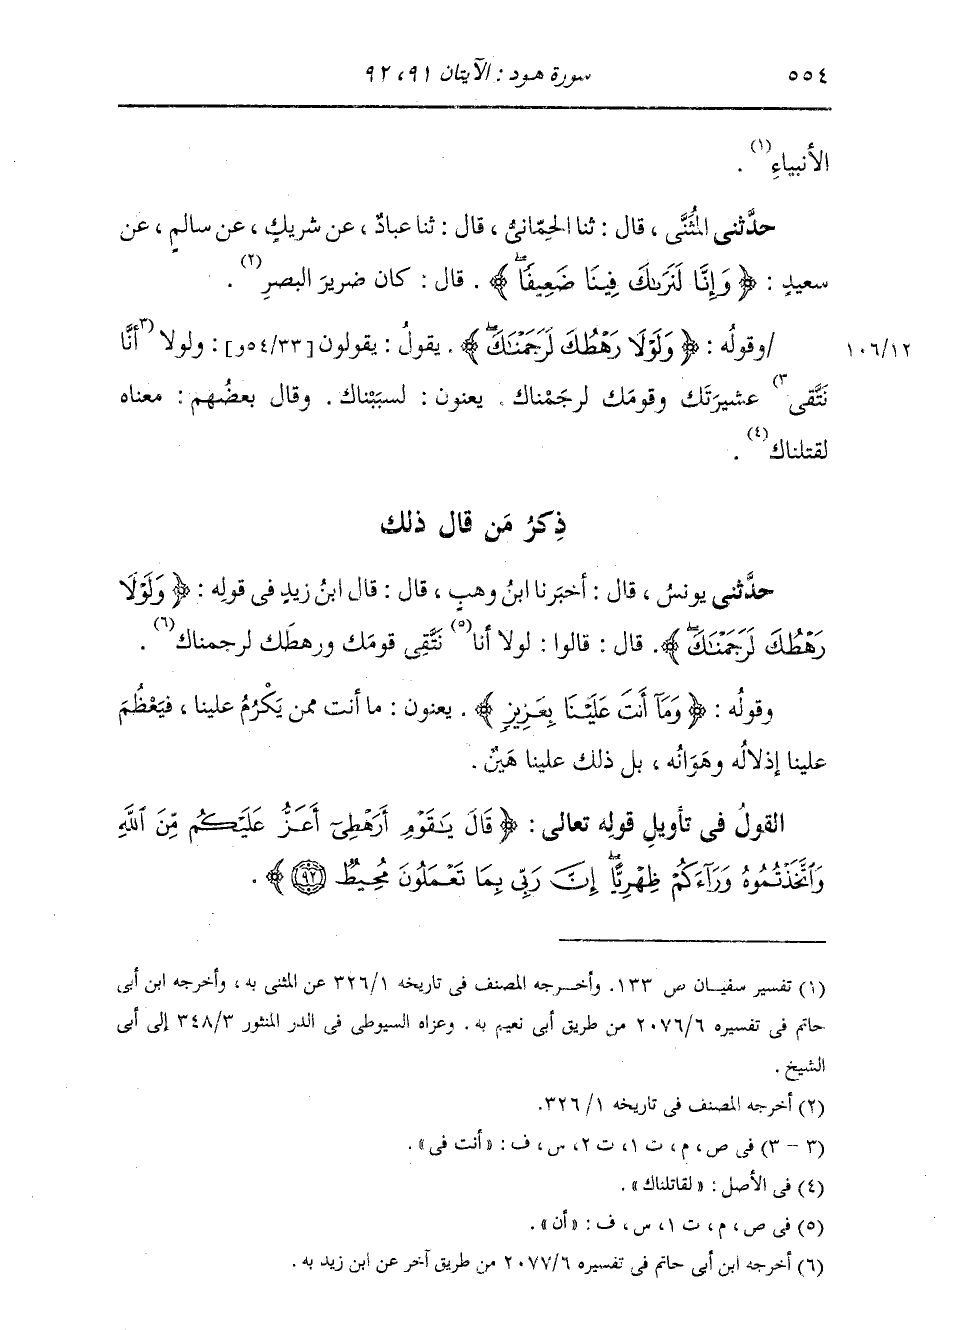 ٥٥٤ سورة هود : الآيتان ٩١، ٩٢
الأنبياءِ(١) .
حدَّثنى المُثَنَّى ، قال : ثنا الحِمّانىُّ ، قال : ثنا عبادٌ ، عن شريكٍ ، عن سالمٍ ، عن
سعيدٍ : ﴿ وَإِنَّا لَنَرَىٰكَ فِينَا ضَعِيفًا ۖ ﴾ . قال : كان ضريرَ البصرِ(٢) .
١٠٦/١٢ /وقولُه : ﴿ وَلَوْلَا رَهْطُكَ لَرَجَمْنَٰكَ ۖ ﴾ . يقولُ : يقولون [٥٤/٣٣و] : ولولا (٣أنَّا
نَتَّقى٣) عشيرَتَك وقومَك لرجَمْناك . يعنون : لسبَبْناك . وقال بعضُهم : معناه
لقتلناك(٤) .
ذِكرُ مَن قال ذلك
حدَّثنى يونسُ ، قال : أخبَرنا ابنُ وهبٍ ، قال : قال ابنُ زيدٍ فى قولِه : ﴿ وَلَوْلَا
رَهْطُكَ لَرَجَمْنَٰكَ ۖ ﴾ . قال : قالوا : لولا أنا(٥) نَتَّقِى قومَك ورهطَك لرجمناك(٦) .
وقولُه : ﴿ وَمَآ أَنتَ عَلَيْنَا بِعَزِيزٍ ﴾ . يعنون : ما أنت ممن يَكْرُمُ علينا ، فيَعْظُمَ
علينا إذلالُه وهَوَانُه ، بل ذلك علينا هَينٌ .
القولُ فى تأويلِ قولِه تعالى : ﴿ قَالَ يَٰقَوْمِ أَرَهْطِىٓ أَعَزُّ عَلَيْكُم مِّنَ ٱللَّهِ
وَٱتَّخَذْتُمُوهُ وَرَآءَكُمْ ظِهْرِيًّا ۖ إِنَّ رَبِّى بِمَا تَعْمَلُونَ مُحِيطٌ (٩٢) ﴾ .
(١) تفسير سفيـان ص ١٣٣. وأخـرجه المصنف فى تاريخه ٣٢٦/١ عن المثنى به ، وأخرجه ابن أبى
حاتم فى تفسيره ٢٠٧٦/٦ من طريق أبى نعيم به . وعزاه السيوطى فى الدر المنثور ٣٤٨/٣ إلى أبى
الشيخ .
(٢) أخرجه المصنف فى تاريخه ١/ ٣٢٦.
(٣ - ٣) فى ص ، م ، ت ١، ت ٢، س ، ف : «أنت فى» .
(٤) فى الأصل : «لقاتلناك» .
(٥) فى ص ، م ، ت ١، س ، ف : «أن» .
(٦) أخرجه ابن أبى حاتم فى تفسيره ٢٠٧٧/٦ من طريق آخر عن ابن زيد به .